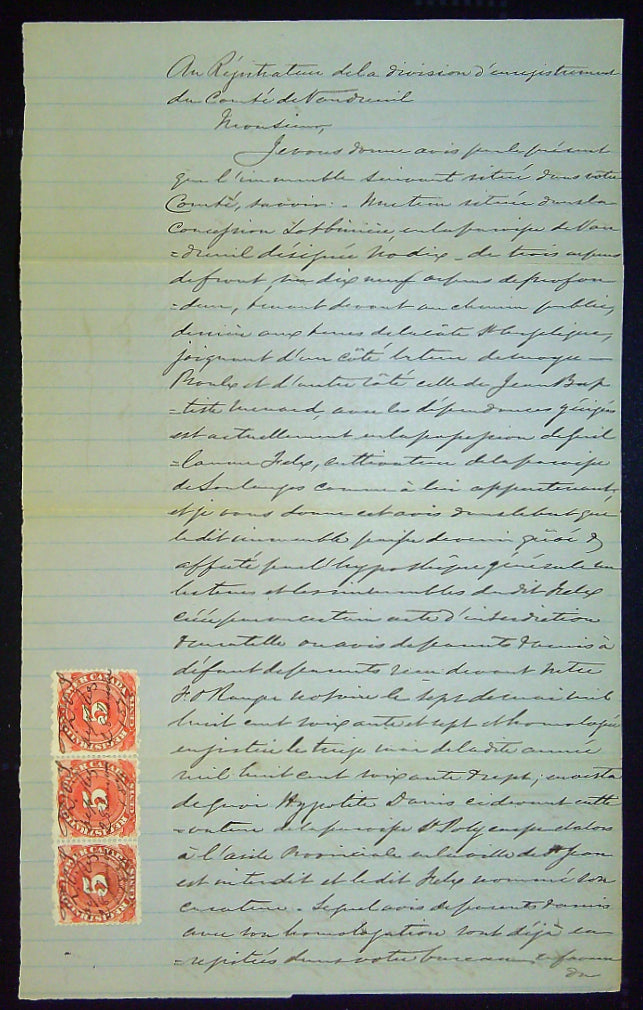 Au Régistrateur de la division d'enregistrement
du Comté de Vaudreuil
Monsieur,
Je vous donne avis par le présent
que l'immeuble suivant situé dans votre
Comté, savoir: - Une terre située dans la
Concession Lotbinière, en la paroisse de Vau
=dreuil désignée No dix - de trois arpens
de front, sur dix neuf arpens de profon
=deur, tenant devant au chemin public,
derrière aux terres de la côte
joignant d'un côté la terre de
Proulx et d'autre côté celle de Jean Bap
=tiste Menard, avec les dépendances y érigées
est actuellement en la possession de Guil
=laume Felix, cultivateur de la paroisse
de Soulanges comme à lui appartenant,
et je vous donne cet avis dans le but que
le dit immeuble puisse devenir grévé &
affecté par l'hypothèque générale sur
les terres et les immeubles du dit Felix
créée par un certain acte d'interdiction
de tutelle ou avis de parents & amis à
défaut de parents reçu devant Mtre
notaire le sept de mai mil
huit cent soixante et sept et homologué
en justice le treize mai de la dite année
mil huit cent soixante & sept; en acte
de quoi Hypolite Daous ci devant culti
=vateur de la paroisse St Polycarpe & alors
à l'asile Provinciale en la ville de St Jean
est interdit et le dit Felix nommé son
curateur - Lequel avis de parents & amis
avec son homologation sont déjà en
=registrés dans votre bureau, en faveur
du
5
5
5